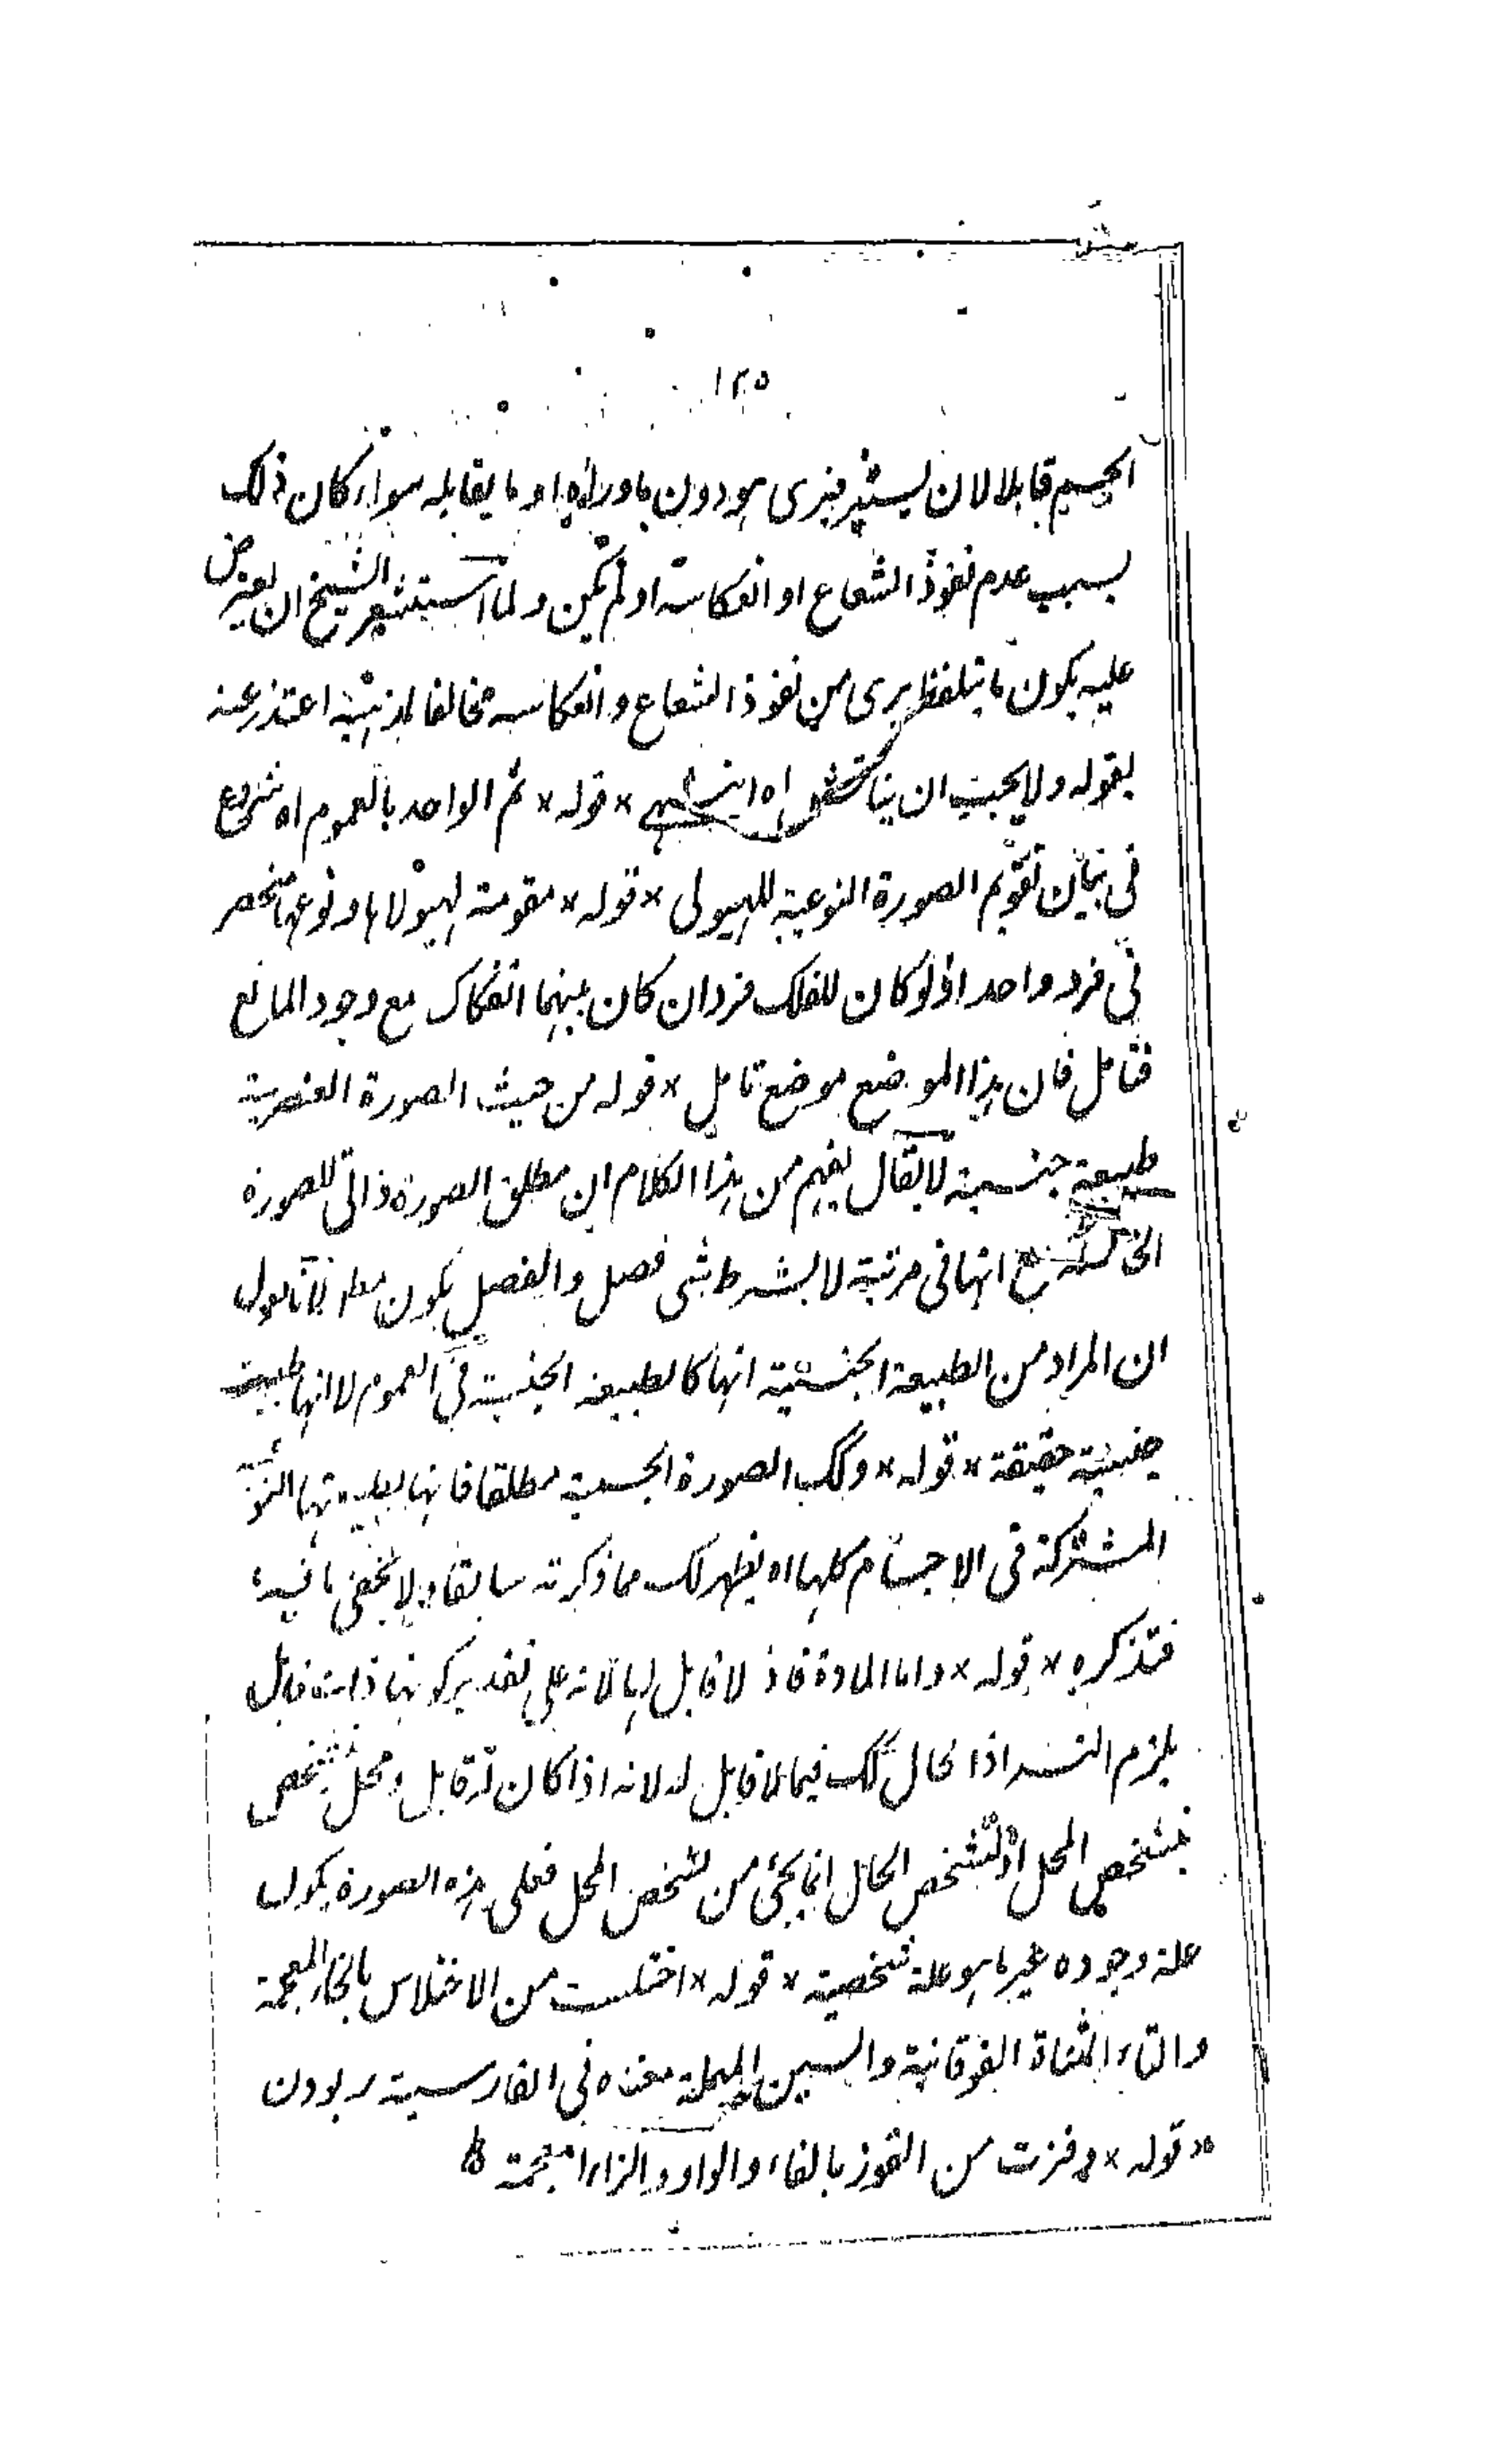 ١٢٥
الجسم قابلا لان يستنير فيرى هو دون ما وراءه او ما يقابله سواء كان ذلك
بسبب عدم نفوذ الشعاع او انعكاسه او لم يكن ولما استشعر الشيخ ان يعترض
عليه بكون ما يتلفظ يرى من نفوذ الشعاع وانعكاسه مخالفا لمذهبه اعتذر عنه
بقوله ولا يجب ان يناقش اه انتهى * قوله * ثم الواحد بالعموم اه شروع
فى بيان تقويم الصورة النوعية للهيولى * قوله * مقومة لهيولاها ونوعها منحصر
فى فرد واحد اذ لو كان للفلك فردان كان بينهما انفكاك مع وجود المانع
فتامل فان هذا الموضع موضع تامل * قوله من حيث الصورة العنصرية
طبيعة جنسية لا يقال يفهم من هذا الكلام ان مطلق الصورة ذاتى للصورة
مع انها فى مرتبة لا بشرط شى فصل والفصل يكون لانا نقول
ان المراد من الطبيعة الجنسية انها كالطبيعة الجنسية فى العموم لا انها طبيعة
جنسية حقيقة * قوله * وكك الصورة الجسمية مطلقا فانها النوعية
المشتركة فى الاجسام كلها اه يظهر لك مما ذكرته سابقا ولا يخفى ما فيه
فتذكره * قوله * واما المادة فاذ لا قابل لها لانه على تقدير كونها ذات قابل
يلزم التسلسل كك فيما لا قابل له لانه اذا كان له قابل ومحل يتشخص
بتشخص المحل اذ تشخص الحال انما يجئ من تشخص المحل فعلى هذه الصورة يكون
علة وجوده غير ما هو علة تشخصية * قوله * اختلست من الاختلاس بالخاء المعجمة
والتاء المثناة الفوقانية والسين المهملة معناه فى الفارسية ربودن
* قوله * وفزت من الفوز بالفاء والواو والزاء المعجمة